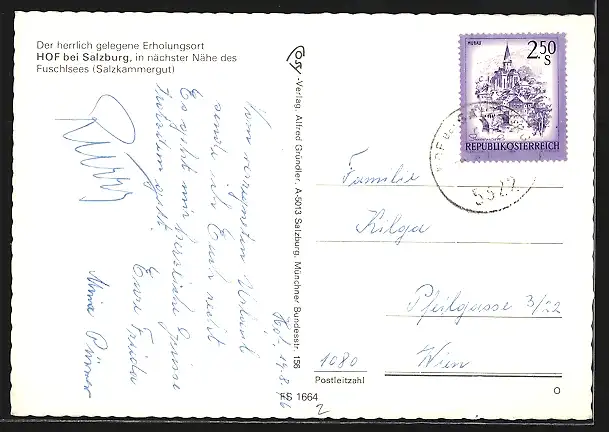 Der herrlich gelegene Erholungsort
HOF bei Salzburg, in nächster Nähe des
Fuschlsees (Salzkammergut)
Hof, 14.8.76
Vom verregneten Urlaub
sende ich Euch recht
herzliche Grüsse
Es geht mir
trotzdem gut!
Eure Frieda
Cosy
-Verlag, Alfred Gründler, A-5013 Salzburg, Münchner Bundesstr. 156
MURAU
2.50
S
REPUBLIKÖSTERREICH
5322
Familie
Kilga
Pfeilgasse 3/22
1080 Wien
Postleitzahl
FS 1664
2
O